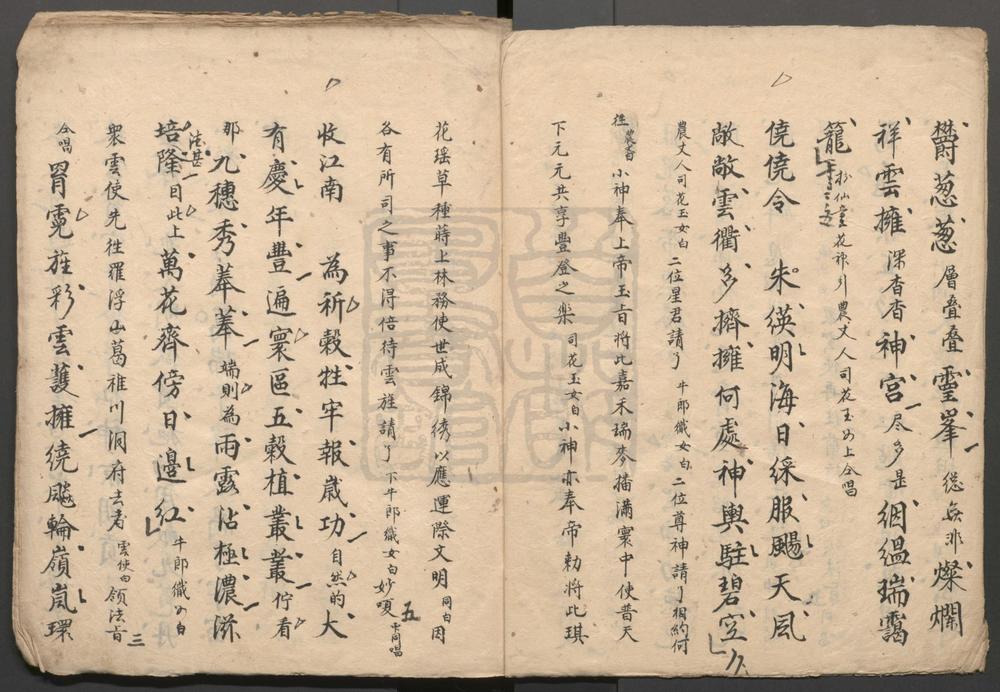 欝葱葱層叠叠靈峯總無非燦爛
祥雲擁深杳杳神宮尽多是絪縕瑞靄
籠扮仙童花神引農丈人司花玉女上合唱
僥僥令 朱英明海日綵服颺天風
敞敞雲衢多擠擁何處神輿駐碧空
農丈人司花玉女白二位星君請了牛郎織女白二位尊神請了相約何
徃農白小神奉上帝玉旨將此嘉禾瑞麥播滿寰中使普天
下元元共享豐登之樂司花玉女白小神亦奉帝勅將此琪
花瑶草種蒔上林務使世成錦綉以應運際文明同白因
各有所司之事不得倍待雲旌請了下牛郎織女白妙嗄
五
收江南 為祈穀牲牢報歲功自然的大
有慶年豐遍寰區五穀植叢叢佇看
那九穗秀菶菶端則為雨露沾極濃滋
培隆日此上萬花齊傍日邊紅牛郎織女白
法甚
衆雲使先徃羅浮山葛稚川洞府去者雲使白領法旨
三
合唱胃霓旌彩雲護擁繞飈輪嶺嵐環